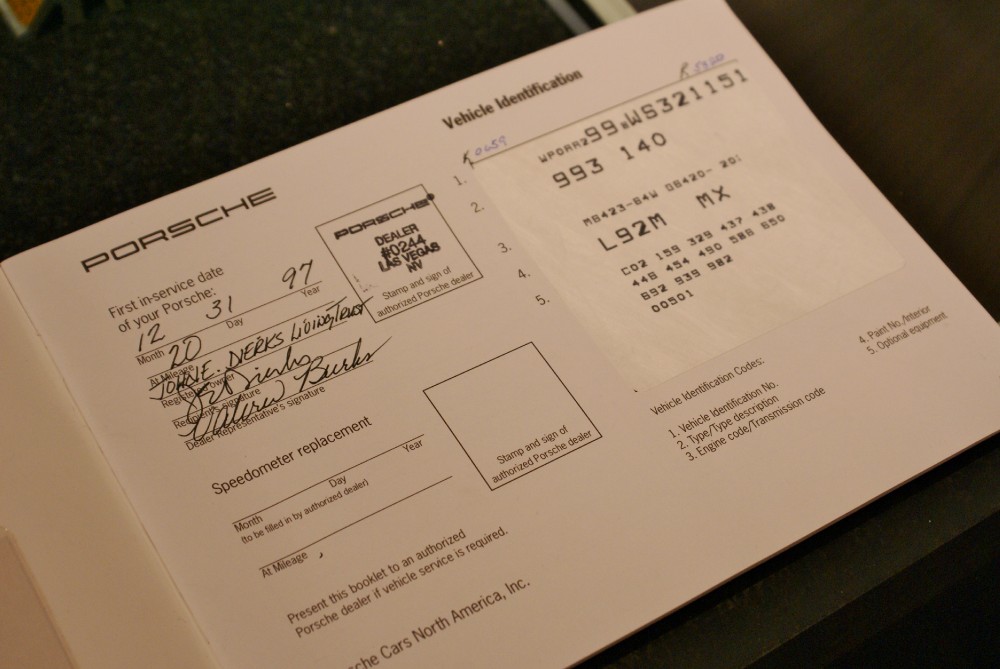 PORSCHE
First in-service date
of your Porsche:
12 31 97
Month Day Year
20
At Mileage
JOHN E. DIERKS LIVING TRUST
Registered owner
Recipient's signature
Valerie Burks
Dealer Representative's signature
PORSCHE
DEALER
#0244
LAS VEGAS
NV
Stamp and sign of
authorized Porsche dealer
Speedometer replacement
Month Day Year
(to be filled in by authorized dealer)
At Mileage
Stamp and sign of
authorized Porsche dealer
Present this booklet to an authorized
Porsche dealer if vehicle service is required.
sche Cars North America, Inc.
Vehicle Identification
K 0659
K 5320
1.
2.
3.
4.
5.
WP0AA299*WS321151
993 140
M6423-64W 08420- 20:
L92M MX
C02 159 329 437 438
446 454 490 586 650
692 939 982
00501
Vehicle Identification Codes:
1. Vehicle Identification No.
2. Type/Type description
3. Engine code/Transmission code
4. Paint No./Interior
5. Optional equipment